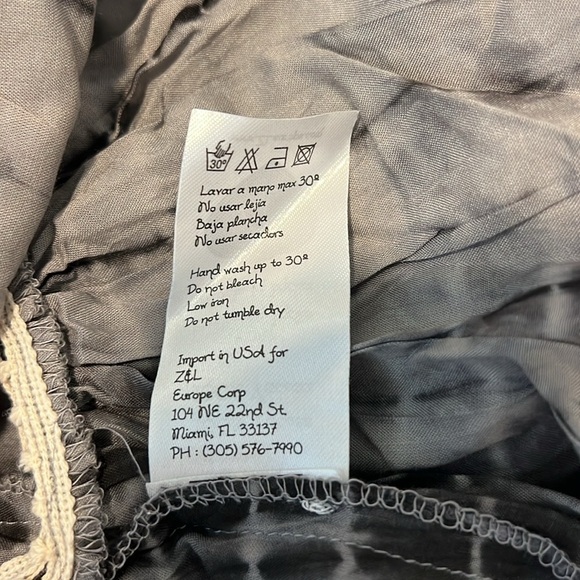 30º
Lavar a mano max 30º
No usar lejía
Baja plancha
No usar secadors
Hand wash up to 30º
Do not bleach
Low iron
Do not tumble dry
Import in USA for
Z&L
Europe Corp
104 NE 22nd St.
Miami, FL 33137
PH : (305) 576-7990